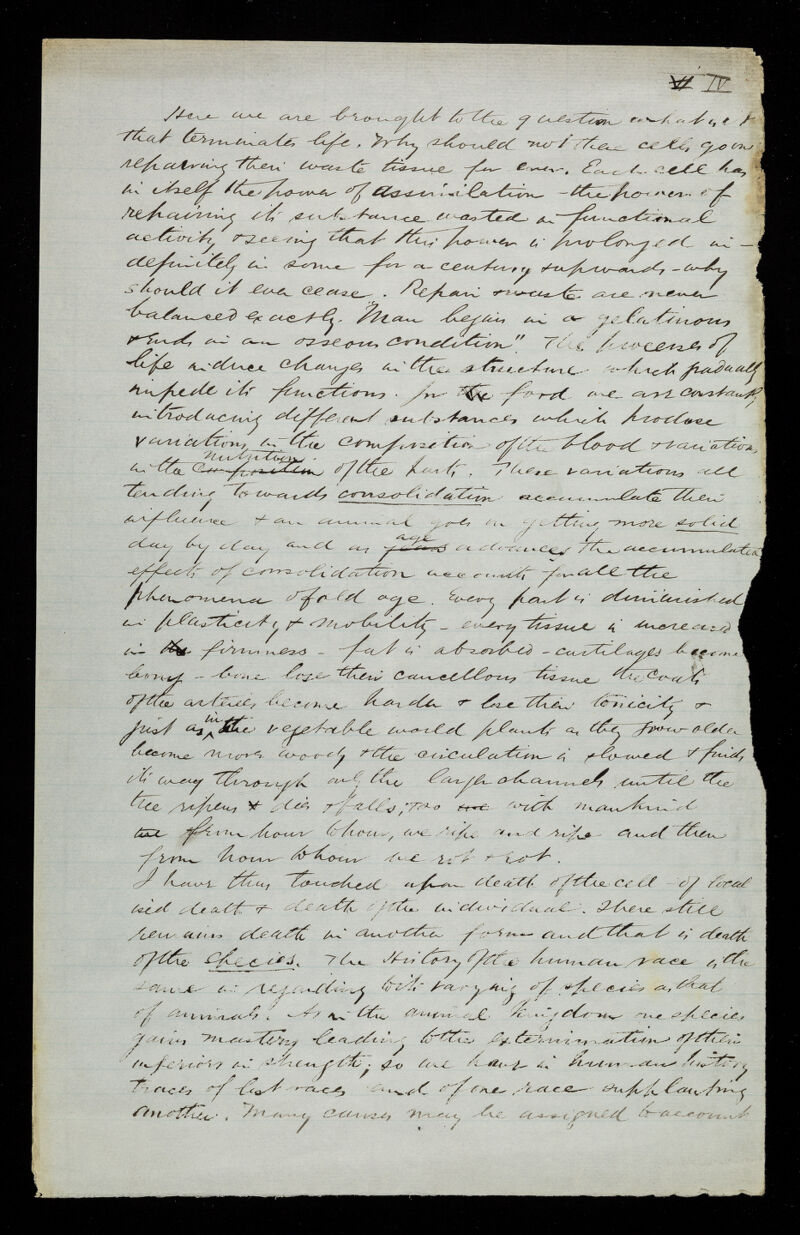 VI IV
Here we are brought to the question what is it
that terminates life. Why should not these cells go on
repairing their waste tissue for ever. Each cell has
in itself the power of assimilation - the power of
repairing its substance wasted in functional
activity & seeing that this power is prolonged in-
definitely in some for a century & upwards - why
should it ever cease. Repair & waste are never
balanced exactly. "Man begins in a gelatinous
& ends in an osseous condition". The processes of
life induce changes in the structure which gradually
impede its functions. In the food we are constantly
introducing different substances which produce
variations in the composition of the blood & variations
in the composition nutrition of the parts. These variations all
tending towards consolidation accumulate their
influence & an animal goes on getting more solid
day by day and as years age advances the accumulated
effects of consolidation accounts for all the
phenomena of old age. Every part is diminished
in plasticity & mobility - every tissue is increased
in the firmness - fat is absorbed - cartilages become
bony - bone lose their cancellous tissue the coats
of the arteries become harder & lose their tonicity &
just as in the vegetable world plants as they grow older
become more woody & the circulation is slowed & finds
its way through only the larger channels until the
tree ripens & dies & falls, & so with mankind
we from hour to hour, we ripe and ripe and then
from hour to hour we rot & rot.
I have thus touched upon death of the cell - of local
ised death & death of the individual. There still
remains death in another form and that is death
of the species. The History of the human race is the
same in regarding to its varying of species as that
of animals. As in the animal kingdom one species
gains mastery leading to the extermination of their
inferiors in strength; so we have in human history
traces of lost races and of one race supplanting
another. Many causes may be assigned to account